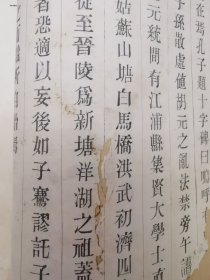 在焉孔子題十字碑曰嗚呼
子孫散處値胡元之亂法禁旁午譜
元統間有江浦縣集賢大學士直
姑蘇山塘白馬橋洪武初濟四
從至晉陵爲新塘洋湖之祖蓋
者恐適以妄後如子騫謬託子